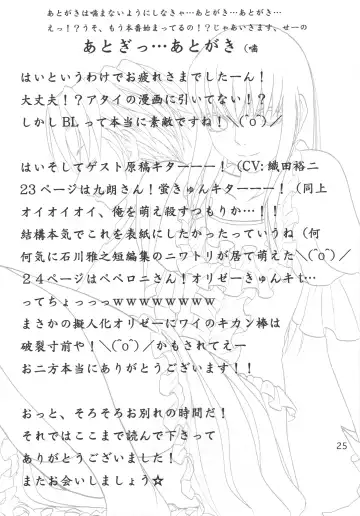 あとがきは噛まないようにしなきゃ…あとがき…あとがき…
えっ！？うそ、もう本番始まってるの！？じゃあいきます、せーの
あとぎっ…あとがき（噛
はいというわけでお疲れさまでしたーん！
大丈夫！？アタイの漫画に引いてない！？
しかしBLって本当に素敵ですね！＼(^o^)／
はいそしてゲスト原稿キターーー！（CV:織田裕二
23ページは九朗さん！蛍きゅんキターーー！（同上
オイオイオイ、俺を萌え殺すつもりか！！
結構本気でこれを表紙にしたかったっていうね（何
何気に石川雅之短編集のニワトリが居て萌えた＼(^o^)／
２４ページはペペロニさん！オリゼーきゅんキt…
ってちょっっっｗｗｗｗｗｗｗｗ
まさかの擬人化オリゼーにワイのキカン棒は
破裂寸前や！＼(^o^)／かもされてえー
お二方本当にありがとうございます！！
おっと、そろそろお別れの時間だ！
それではここまで読んで下さって
ありがとうございました！
またお会いしましょう☆
25